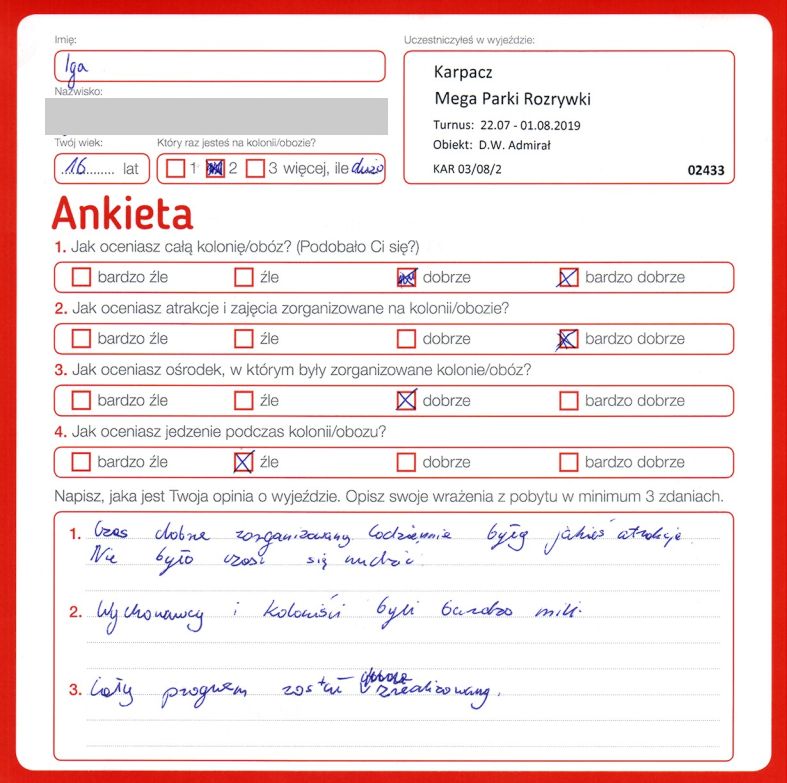 Imię:
Iga
Nazwisko:
Twój wiek:
16 lat
Który raz jesteś na kolonii/obozie?
1 2 3 więcej, ile dużo
Uczestniczyłeś w wyjeździe:
Karpacz
Mega Parki Rozrywki
Turnus: 22.07 - 01.08.2019
Obiekt: D.W. Admirał
KAR 03/08/2 02433
Ankieta
1. Jak oceniasz całą kolonię/obóz? (Podobało Ci się?)
bardzo źle źle dobrze bardzo dobrze
2. Jak oceniasz atrakcje i zajęcia zorganizowane na kolonii/obozie?
bardzo źle źle dobrze bardzo dobrze
3. Jak oceniasz ośrodek, w którym były zorganizowane kolonie/obóz?
bardzo źle źle dobrze bardzo dobrze
4. Jak oceniasz jedzenie podczas kolonii/obozu?
bardzo źle źle dobrze bardzo dobrze
Napisz, jaka jest Twoja opinia o wyjeździe. Opisz swoje wrażenia z pobytu w minimum 3 zdaniach.
1. Czas dobrze zorganizowany. Codziennie były jakieś atrakcje.
Nie było czasu się nudzić.
2. Wychowawcy i koloniści byli bardzo mili.
3. Cały program został zrealizowany.